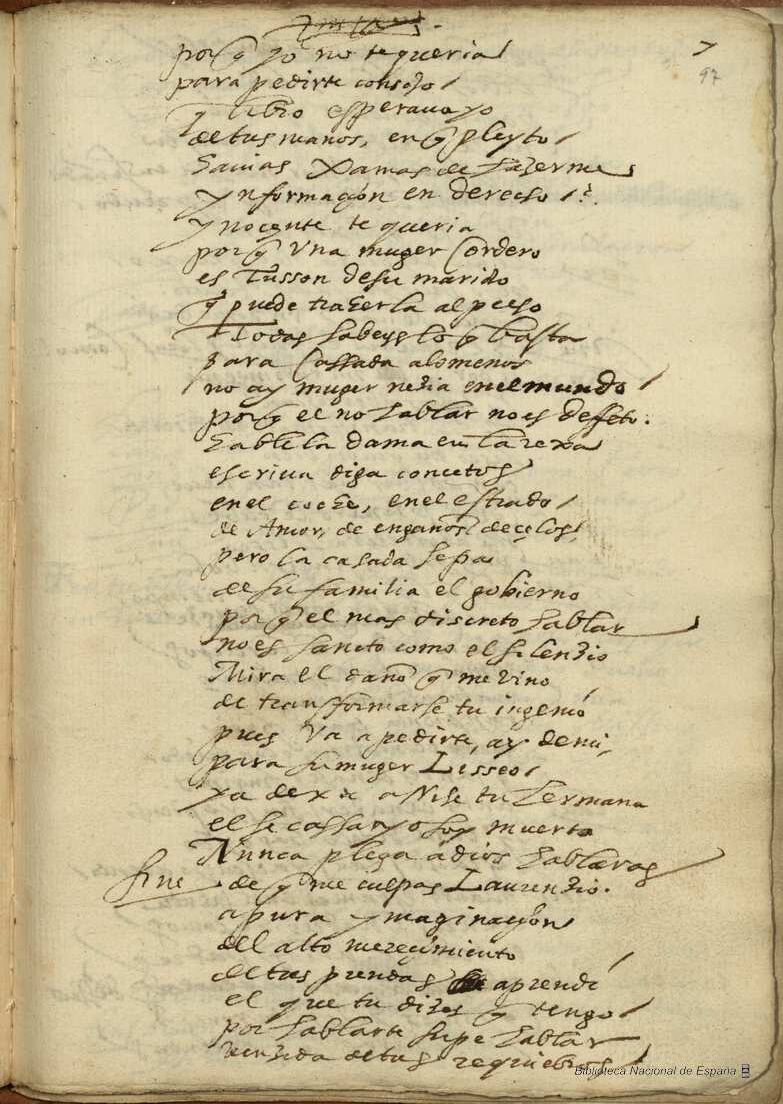 porq yo no te queria
7
97
para pedirte consejo
q libro esperaua yo
de tus manos, en q pleyto
hauias xamas de hazerme
ynformaçion en derecho?
ynocente te queria
porq Vna muger Cordero
es Tusson de su marido
q puede traherla al pecho
Todas sabeys lo q basta
para Cassada alomenos
no ay muger nezia en el mundo
porq el no hablar no es deffeto.
Hable la dama en la rexa
escriua diga concetos
en el coche, en el estrado
de Amor, de engaños, de çelos,
pero la casada sepa
de su familia el gobierno
porq el mas discreto hablar
no es sancto como el silenzio
Mira el daño q me vino
de transformarse tu ingenio
pues Va a pedirte, ay de mi,
para su muger Lisseo
ya dexa a Nise tu hermana
el se cassa yo soy muerto
Nunca plega a dios hablaras
fine
de q me culpas Laurenzio.
a pura ymaginaçion
del alto mereçimiento
de tus prendas aprendi
el que tu dizes q tengo
por hablarte supe hablar
venzida de tus requiebros
Biblioteca Nacional de España